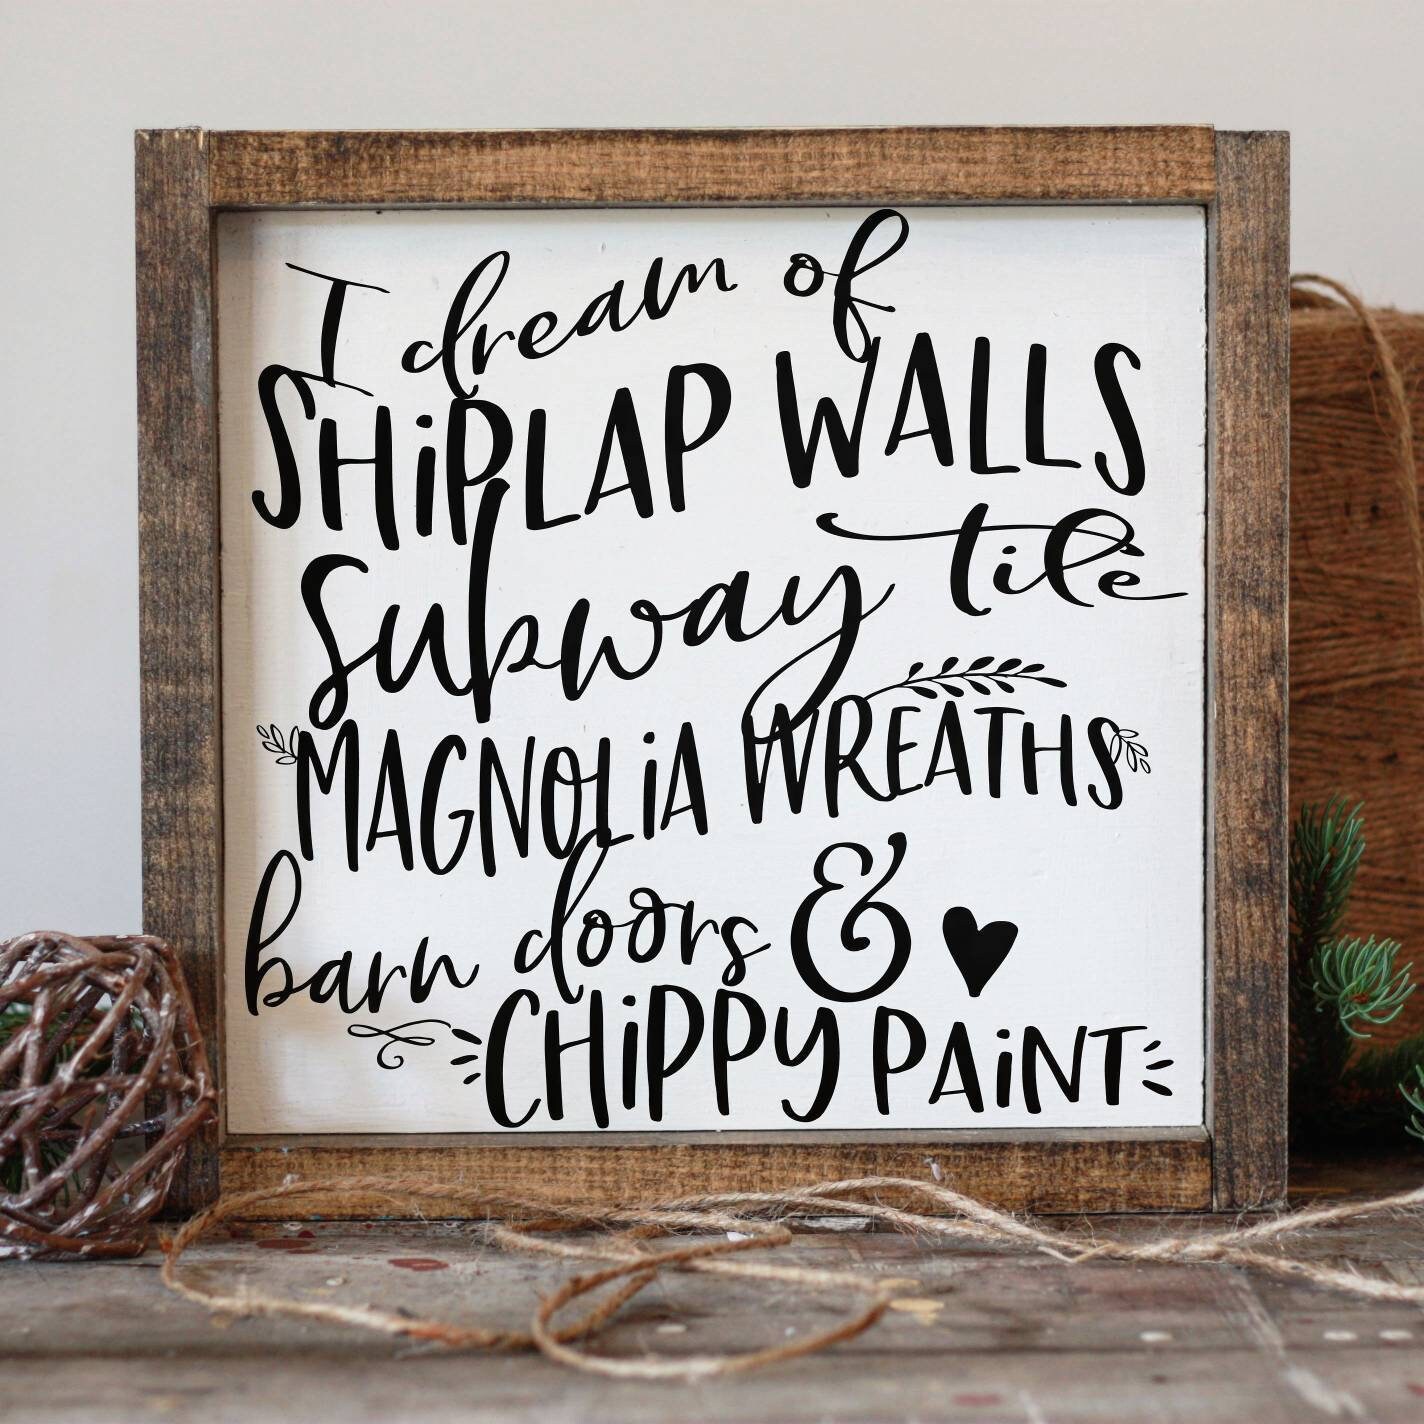 I dream of
SHiPLAP WALLS
Subway tile
MAGNOLiA WREATHS
barn doors &
CHiPPY PAiNT